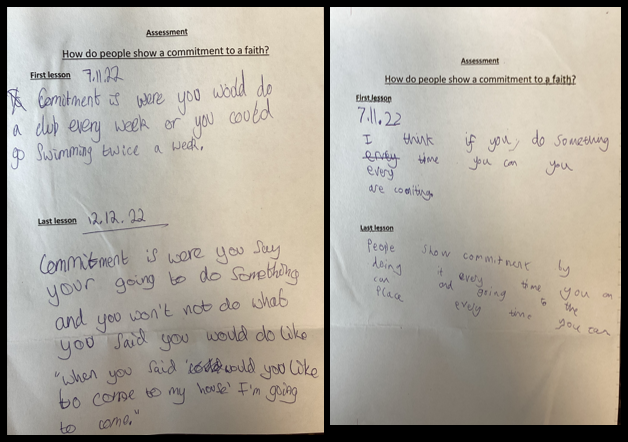 Assessment
How do people show a commitment to a faith?
First lesson 7.11.22
Comitment is were you would do
a club every week or you could
go swimming twice a week.
Last lesson 12.12.22
Commitment is were you say
your going to do something
and you won't not do what
you said you would do like
"when you said would you like
to come to my house' I'm going
to come."
Assessment
How do people show a commitment to a faith?
First lesson
7.11.22
I think if you, do something
every time you can you
every
are comiting.
Last lesson
People show commitment by
doing it every time you
can and going to the
place every time you can